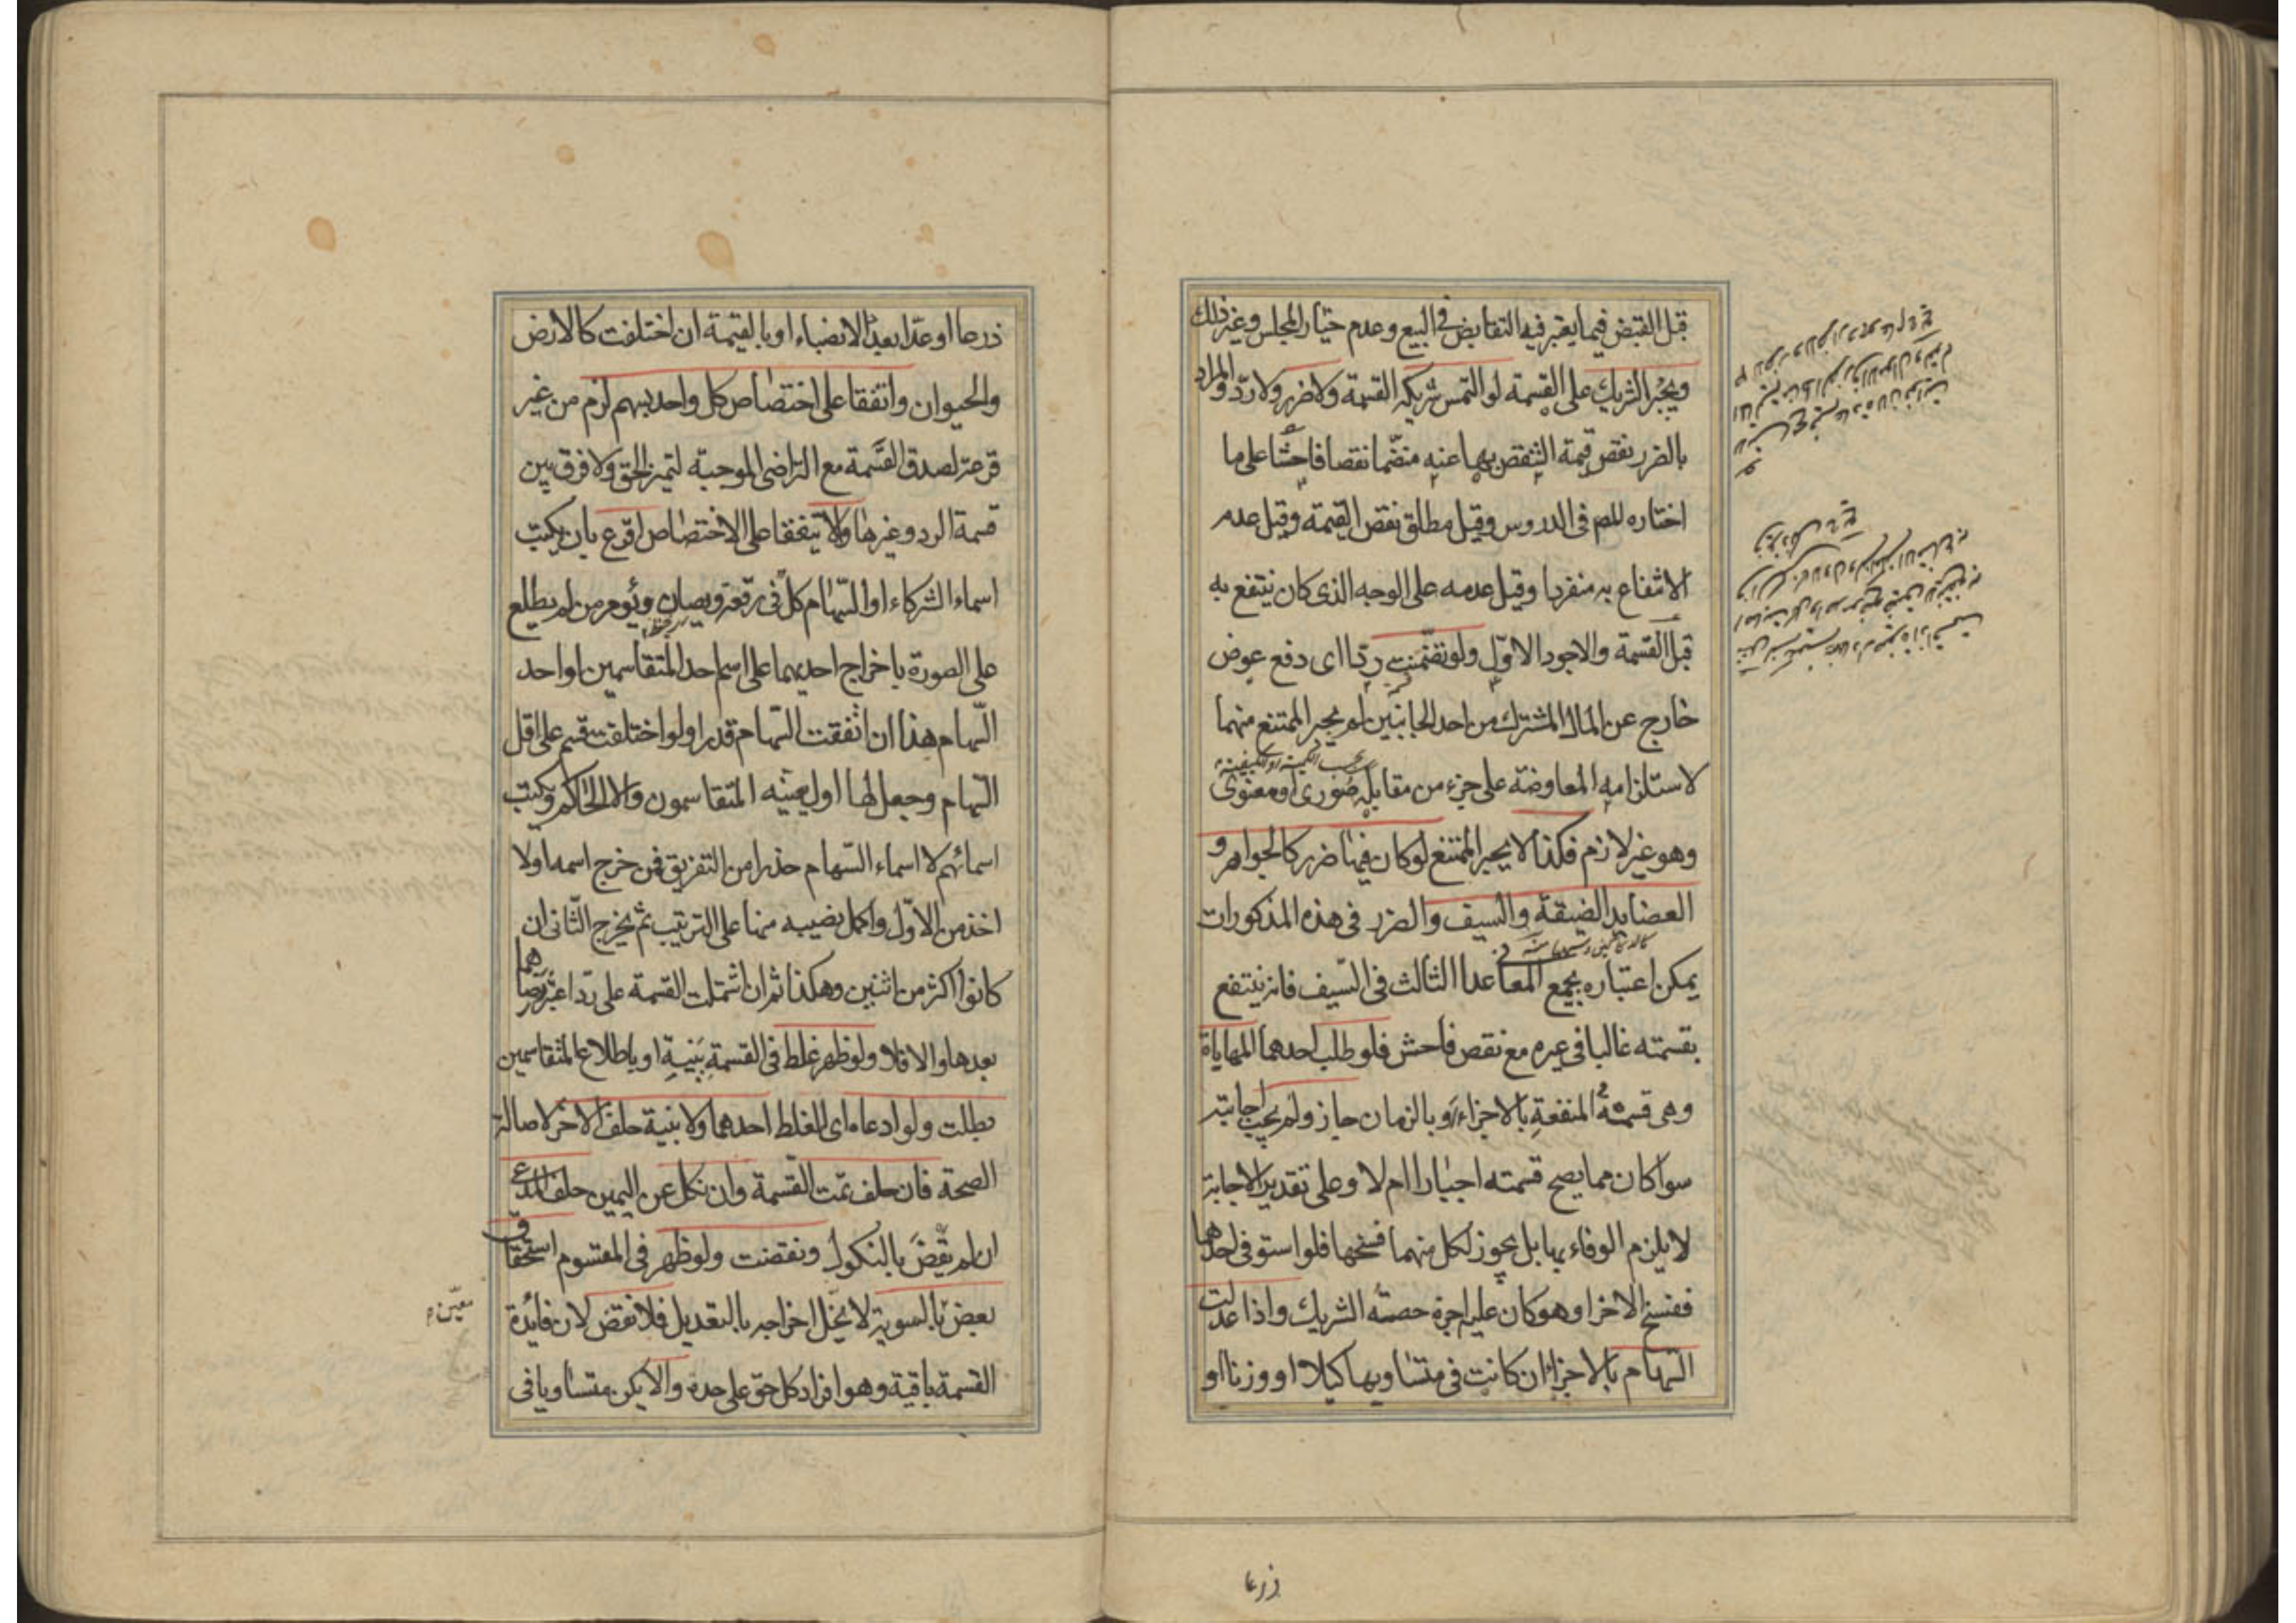 قبل القبض فيما يعتبر فيه التقابض فى البيع وعدم خيار المجلس وغير ذلك
ويجبر الشريك على القسمة لو التمس شريكه القسمة ولا ضرر ولا ردّ والمراد
بالضرر نقص قيمة الشقص بها عنه منضمّا نقصا فاحشا على ما
اختاره المص فى الدروس وقيل مطلق نقص القيمة وقيل عدم
الانتفاع به منفردا وقيل عدمه على الوجه الذى كان ينتفع به
قبل القسمة والاجود الاوّل ولو تضمّنت ردّا اى دفع عوض
خارج عن المال المشترك من احد الجانبين لم يجبر الممتنع منهما
لاستلزامه المعاوضة على جزء من مقابله صورى او معنوى
وهو غير لازم فكذا لا يجبر الممتنع لو كان فيها ضرر كالجواهر و
العضايد الضيقة والسيف والضرر فى هذه المذكورات
يمكن اعتباره بجميع المعا عدا الثالث فى السّيف فانه ينتفع
بقسمته غالبا فى غيره مع نقص فاحش فلو طلب احدهما المهاياة
وهى قسمة المنفعة بالاجزاء او بالزمان جاز ولم يجب اجابته
سوا كان مما يصح قسمته اجبارا ام لا وعلى تقدير الاجابة
لا يلزم الوفاء بها بل يجوز لكل منهما فسخها فلو استوفى احدهما
ففسخ الاخر او هو كان عليه اجرة حصته الشريك واذا عدلت
السهام بالاجزاء ان كانت فى متساويها كيلا او وزنا او
ذرعا
ذرعا او عدّا بعدد الانصباء او بالقيمة ان اختلفت كالارض
والحيوان واتفقا على اختصاص كل واحد بسهم لزم من غير
قرعة لصدق القسمة مع التراضى الموجبة لتميز الحق ولا فرق بين
قسمة الرد وغيرها ولا يتفقا على الاختصاص اقرع بان يكتب
اسماء الشركاء او السّهام كل فى رقعة ويصان ويؤمر من لم يطلع
على الصورة باخراج احديهما على اسم احد المتقاسمين او احد
السّهام هذا ان اتفقت السّهام قدرا ولو اختلفت قسم على اقل
السّهام وجعل لها اول يعينه المتقاسمون والا الحاكم ويكتب
اسمائهم لا اسماء السّهام حذرا من التفريق فمن خرج اسمه اولا
اخذ من الاوّل واكمل نصيبه منها على الترتيب ثم يخرج الثّانى ان
كانوا اكثر من اثنين وهكذا ثم ان اشتملت القسمة على ردّ اعتبر رضاهما
بعدها والا فلا ولو ظهر غلط فى القسمة ببنية او باطلاع المتقاسمين
بطلت ولو ادعاه اى الغلط احدهما ولا بنية حلف الاخر لاصالة
الصحة فان حلف تمّت القسمة وان نكل عن اليمين حلف المدعى
ان لم يقض بالنكول ونقضت ولو ظهر فى المقسوم استحقاق
بعض بالسوية لا يخل اخراجه بالتعديل فلا نقض لان فائدة
معيّن
القسمة باقية وهو افراد كل حق على حده والا يكن متساويا فى